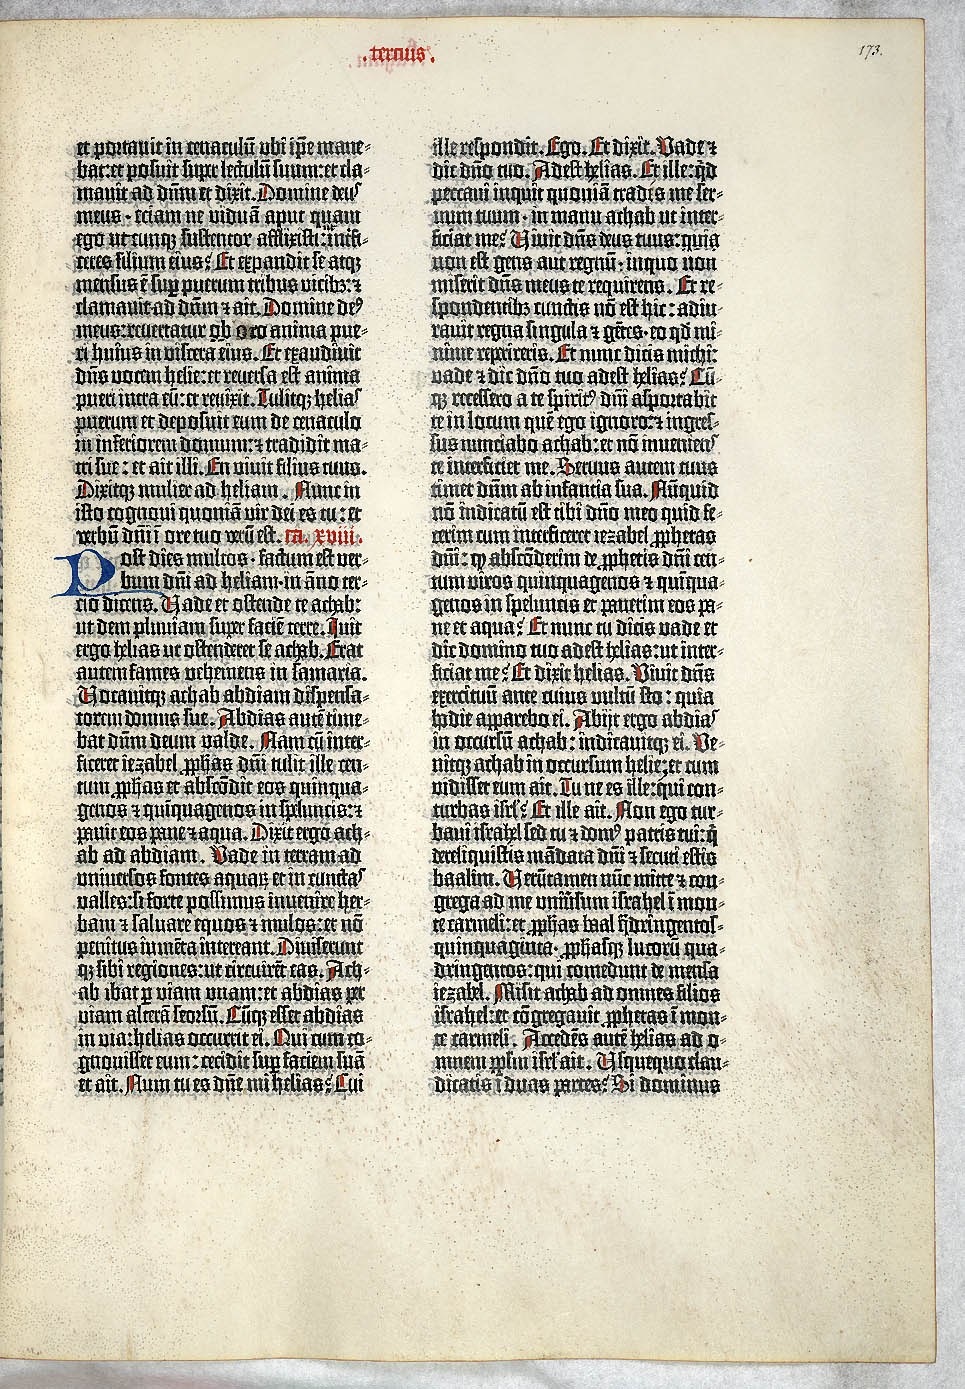 .tercius.
173.
et portauit in cenaculū vbi ip̄e mane-
bat: et posuit super lectulū suum: et cla-
mauit ad dn̄m et dixit. Domine deus
meus · eciam ne viduā aput quam
ego ut cunq; sustentor afflixisti: int̄fi-
ceres filium eius? Et expandit se atq;
mensus ē sup puerum tribus vicib;: ⁊
clamauit ad dn̄m ⁊ ait. Domine de⁹
meus: reuertatur oḇ oro anima pue-
ri huius in viscera eius. Et exaudiuit
dn̄s vocem helie: et reuersa est anima
pueri intra eū: et reuixit. Tulitq; helias
puerum et deposuit eum de cenaculo
in inferiorem domum: ⁊ tradidit ma-
tri sue: et ait illi. En viuit filius tuus.
Dixitq; mulier ad heliam. Nunc in
isto cognoui quoniā vir dei es tu: et
verbū dn̄i ī ore tuo verū est. ca. xviii.
Post dies multos · factum est ver-
bum dn̄i ad heliam · in āno ter-
tio dicens. Vade et ostende te achab:
ut dem pluuiam super faciē terre. Iuit
ergo helias ut ostenderet se achab. Erat
autem fames vehemens in samaria.
Vocauitq; achab abdiam dispensa-
torem domus sue. Abdias autē time-
bat dn̄m deum valde. Nam cū inter-
ficeret iezabel ꝓphās dn̄i tulit ille cen-
tum ꝓphās et abscōdit eos quinqua-
genos ⁊ quīquagenos in speluncis: ⁊
pauit eos pane ⁊ aqua. Dixit ergo ach-
ab ad abdiam. Vade in terram ad
vniuersos fontes aquaꝝ et in cunctas
valles: si forte possimus inuenire her-
bam ⁊ saluare equos ⁊ mulos: et nō
penitus iumēta intereant. Diuiserunt
q; sibi regiones: ut circuirēt eas. Ach-
ab ibat ꝑ viam vnam: et abdias per
viam alterā seorsū. Cūq; esset abdias
in via: helias occurrit ei. Qui cum co-
gnouisset eum: cecidit sup faciem suā
et ait. Num tu es dn̄e mi helias? Cui
ille respondit. Ego. Et dixit. Vade ⁊
dic dn̄o tuo. Adest helias. Et ille: qͥd
peccaui inquit quoniā tradis me ser-
uum tuum · in manu achab ut inter-
ficiat me? Viuit dn̄s deus tuus: quia
non est gens aut regnū · in quo non
miserit dn̄s meus te requirens. Et re-
spondentib; cunctis nō est hic: adiu-
rauit regna singula ⁊ gētes · eo qd̄ mi-
nime reperireris. Et nunc dicis michi:
vade ⁊ dic dn̄o tuo adest helias? Cū-
q; recessero a te spirit⁹ dn̄i asportabit
te in locum quē ego ignoro: ⁊ ingres-
sus nunciabo achab: et nō inueniens
te interficiet me. Seruus autem tuus
timet dn̄m ab infantia sua. Nūquid
nō indicatū est tibi dn̄o meo quid fe-
cerim cum interficeret iezabel ꝓphetas
dn̄i: ꝙ abscōderim de ꝓphetis dn̄i cen-
tum viros quinquagenos ⁊ quīqua-
genos in speluncis et pauerim eos pa-
ne et aqua? Et nunc tu dicis vade et
dic domino tuo adest helias: ut inter-
ficiat me? Et dixit helias. Viuit dn̄s
exercituū ante cuius vultū sto: quia
hodie apparebo ei. Abijt ergo abdias
in occursū achab: indicauitq; ei. Ve-
nitq; achab in occursum helie: et cum
vidisset eum ait. Tu ne es ille: qui con-
turbas isrl̄? Et ille ait. Non ego tur-
baui israhel sed tu ⁊ dom⁹ patris tui: q̄
dereliquistis mādata dn̄i ⁊ secuti estis
baalim. Verūtamen nūc mitte ⁊ con-
grega ad me vniūsum israhel ī mon-
te carmeli: et ꝓphās baal q̄dringentos-
quinquaginta · ꝓphāsq; lucorū qua-
dringentos: qui comedunt de mensa
iezabel. Misit achab ad omnes filios
israhel: et cōgregauit ꝓphetas ī mon-
te carmeli. Accedēs autē helias ad o-
mnem ppl̄m isrl̄ ait. Vsquequo clau-
dicatis ī duas partes? Si dominus